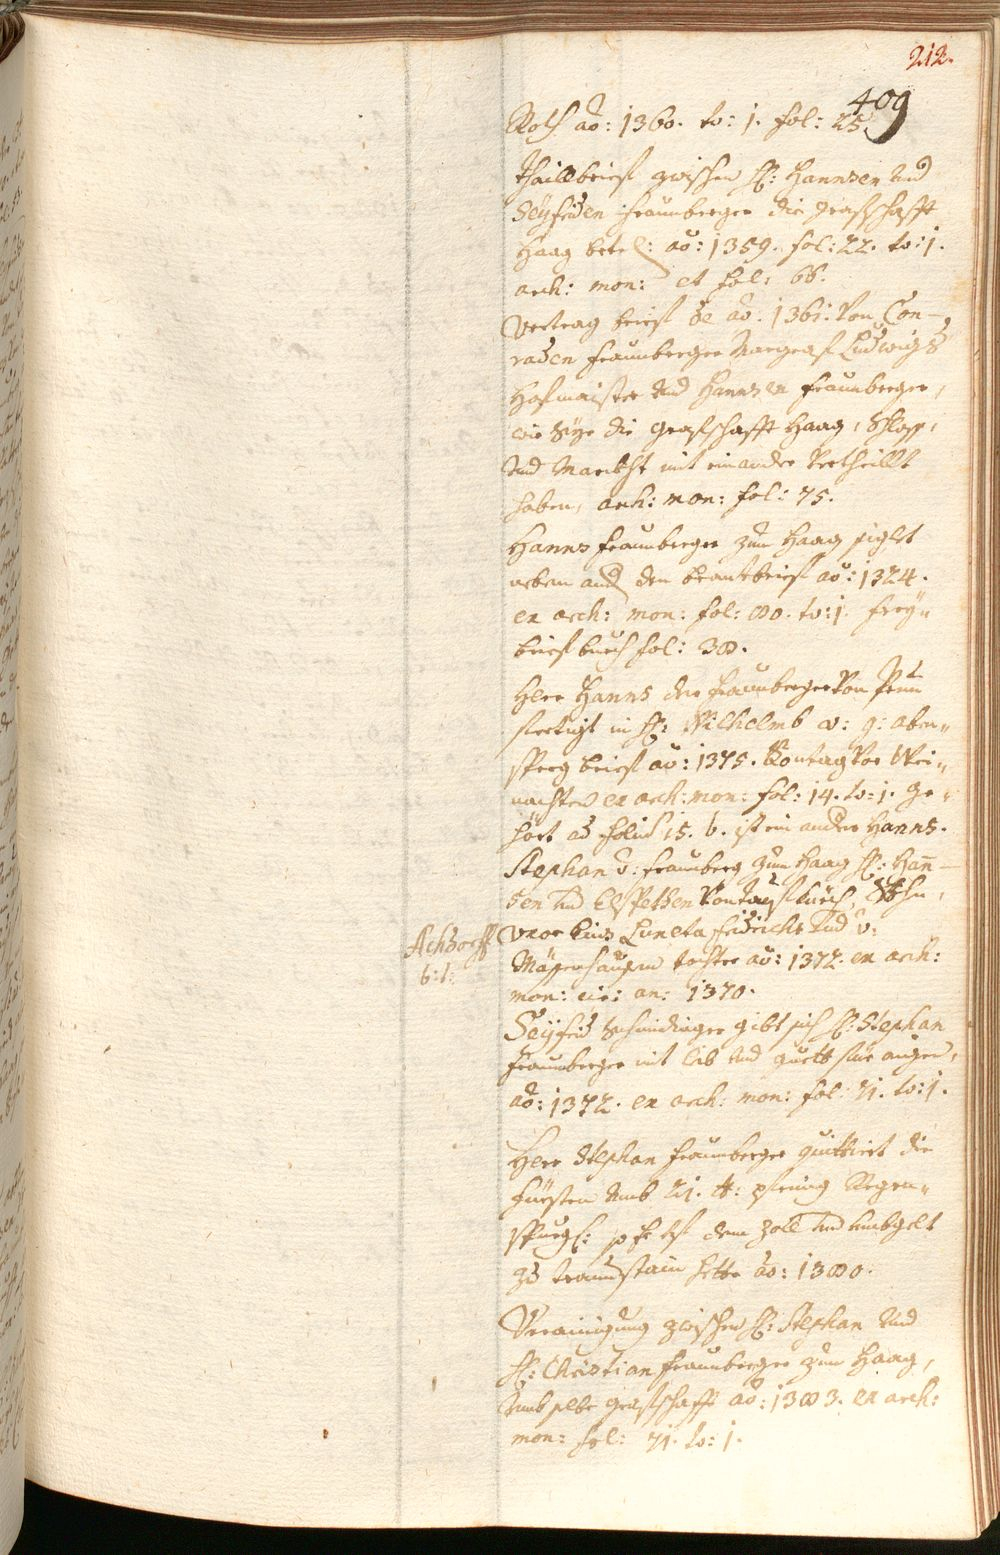 212.
409
Rolf ao: 1360. to: 1. fol: 25.
Thaillbrief zwischen H: Hannsen und
Seyfriden Fraunberger die Grafschafft
Haag betr: ao: 1359. fol: 22. to: 1.
arch: mon: et fol: 66.
Vertrag brief de ao: 1361. Von Con-
raden Fraunberger Margraf Ludwigs
Hofmaister und Hannsen Fraunberger,
wie Sye die Grafschafft Haag, Schloss,
und Marckht mit einander vertheillt
haben, arch: mon: fol: 75.
Hanns Fraunberger zum Haag siglet
neben and den brief ao: 1324.
ex arch: mon: fol: 80. to: 1. frey-
brief buech fol: 38.
Herr Hanns der Fraunberger von Prun
fertigt in H: Wilhelmb v: g: Aben-
sperg brief ao: 1375. Sontag vor Wei-
nachten ex arch: mon: fol: 14. to: 1. ge-
hört ad folium 15. b. ist ein ander Hanns.
Stephan v: Fraunberg zum Haag H: Han-
sen und Elspethen von Sohn,
uxor eius Luneta Fridrichs und v:
tochter ao: 1372. ex arch:
mon: an: 1370.
Achdorff
6: 1.
Seyfrid gibt sich H: Stephan
Fraunberger mit leib und guett für aigen,
ao: 1372. ex arch: mon: fol: 71. to: 1.
Herr Stephan Fraunberger quittiert die
Fürsten umb 21. ℔: pfening Regen-
spurg: so er uf dem Zoll und umbgelt
zu Traunstain hette ao: 1380.
Verainigung zwischen H: Stephan und
H: Christian Fraunberger zum Haag,
umb selbe Grafschafft ao: 1383. ex arch:
mon: fol: 71. to: 1.